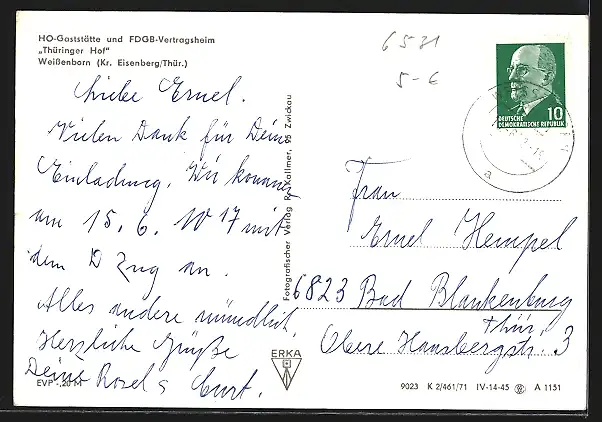 HO-Gaststätte und FDGB-Vertragsheim
„Thüringer Hof"
Weißenborn (Kr. Eisenberg/Thür.)
6531
5-€
Liebe Ernel.
Vielen Dank für Deine
Einladung. Wir kommen
am 15. 6. 10 17 mit
dem D Zug an.
Alles andere mündlich.
Herzliche Grüße
Deine Rosel & Curt.
EVP -,20 M
Fotografischer Verlag R. Kallmer, 95 Zwickau
ERKA
10
DEUTSCHE
DEMOKRATISCHE REPUBLIK
a
Frau
Ernel Hempel
6823 Bad Blankenburg
Thür.
Obere Hansbergstr. 3
9023 K 2/461/71 IV-14-45 A 1151